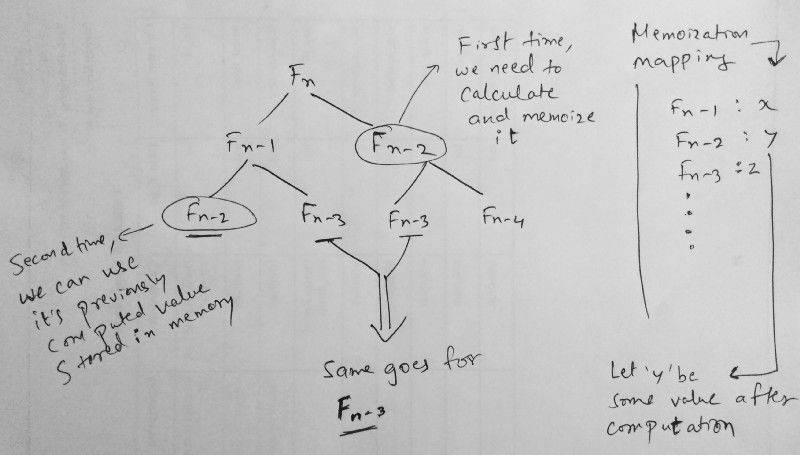 Fn
Fn-1
Fn-2
Fn-2
Fn-3
Fn-3
Fn-4
First time,
we need to
calculate
and memoize
it
Second time,
we can use
it's previously
computed value
Stored in memory
Same goes for
Fn-3
Memoization
mapping
Fn-1 : x
Fn-2 : y
Fn-3 : z
Let 'y' be
some value after
computation